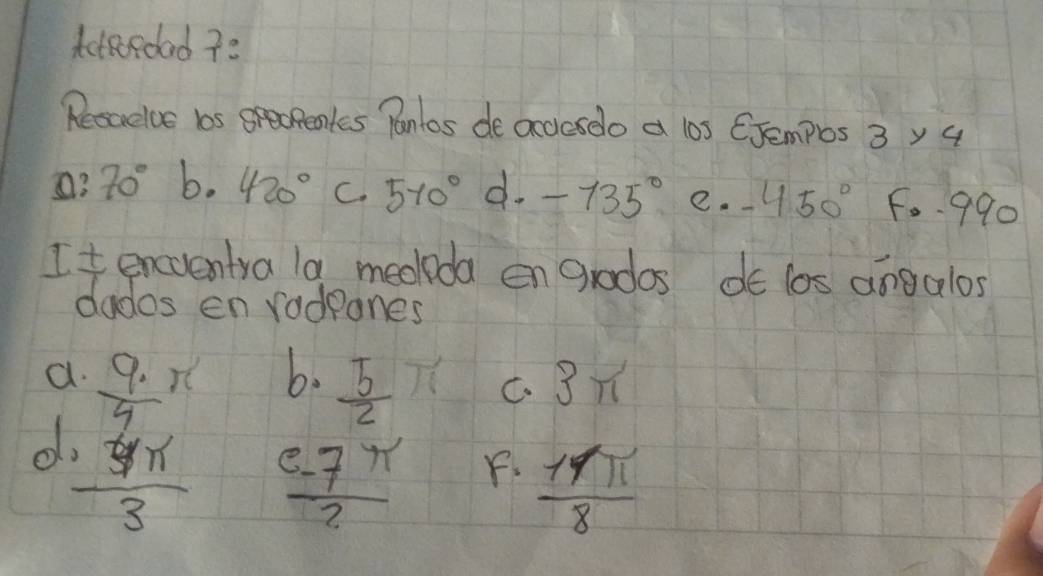 Actividad 7:
Resuelve los siguientes Puntos de acuerdo a los EJEmplos 3 y 4
a: 70° b. 420° c. 510° d. -135° e. -450° F. -990
II encuentra la medida en grados de los ángulos
dados en radianes
a. 9π/4 b. 5/2 π c. 3π
d. π/3 e. -7π/2 F. 11π/8